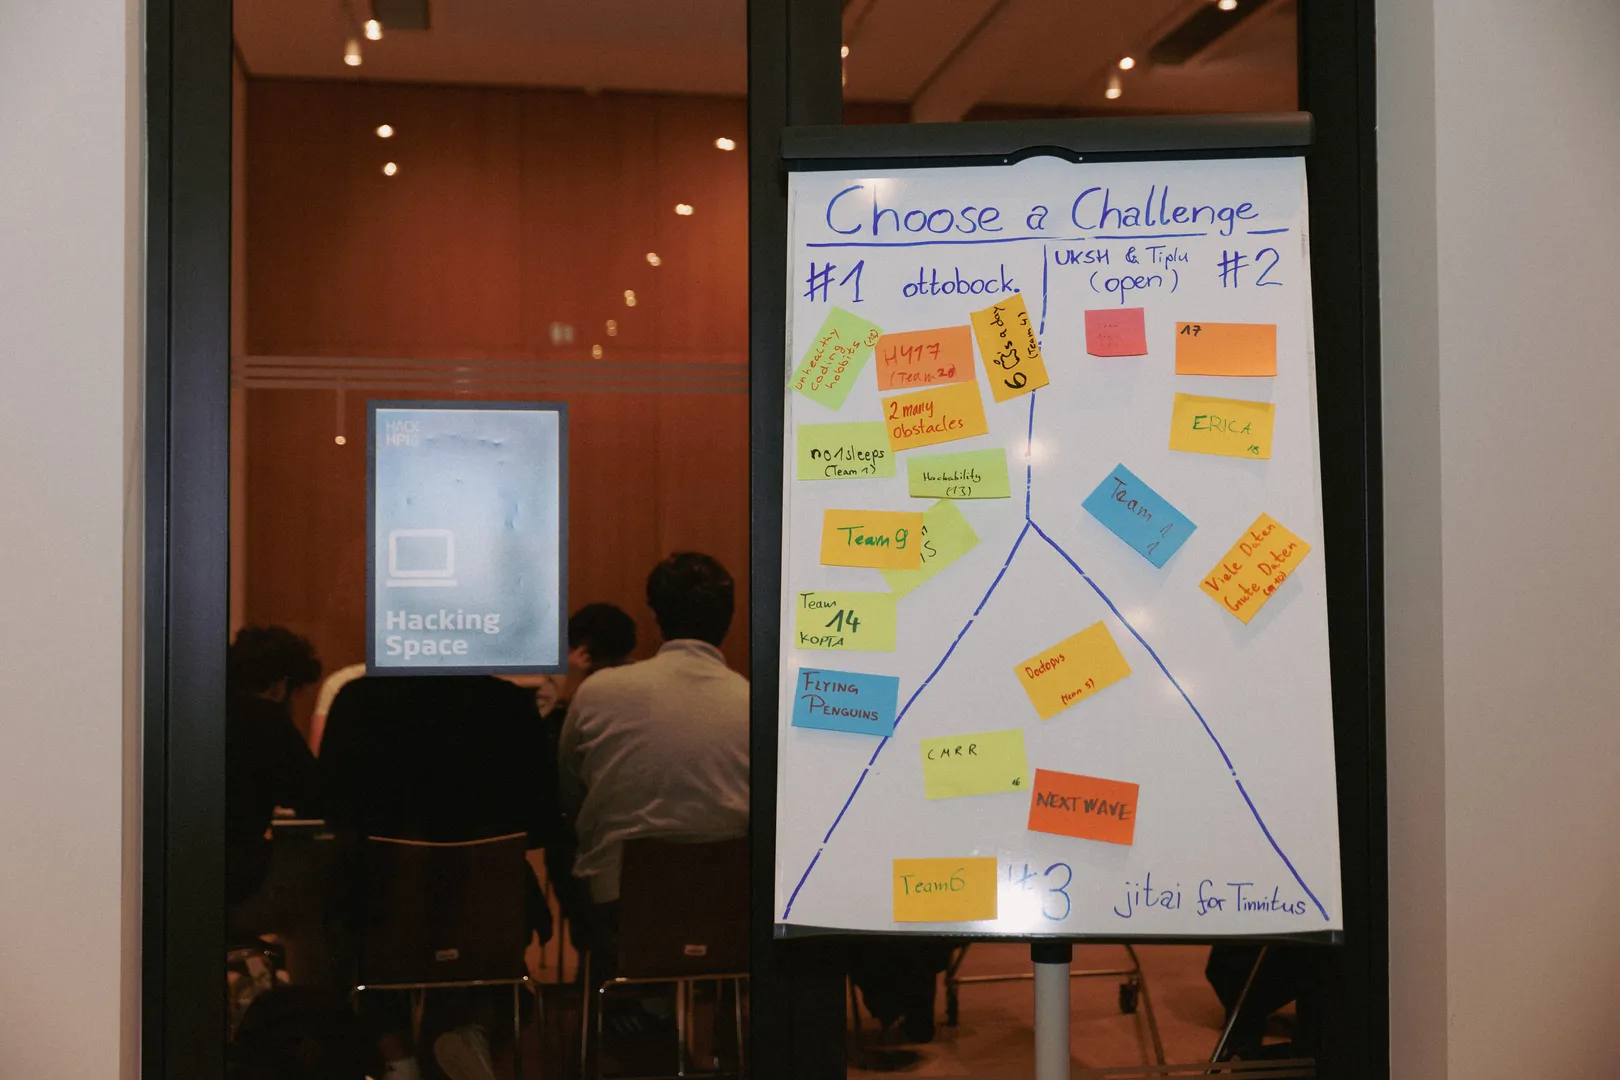 HACK
HPI
Hacking
Space
Choose a Challenge
#1 ottobock.
UKSH & Tiplu
(open)
#2
unhealthy
coding
hobbits
(12)
H417
(Team 20)
6 a day
(Team 4)
2 many
obstacles
no1sleeps
(Team 1)
Hackability
(13)
Team 9
15
Team
14
KOPTA
FLYING
PENGUINS
17
ERICA
18
Team 1
1
Viele Daten
Gute Daten
Doctopus
(Team 5)
CMRR
16
NEXT WAVE
Team 6
#3
jitai for Tinnitus